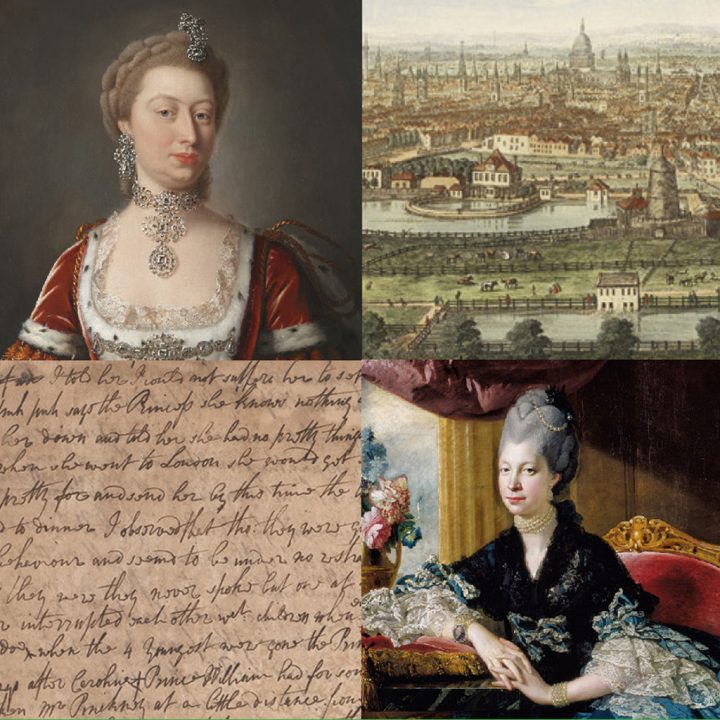 I told her I could not suffer her to
says the Princess she knows nothing
her down and told her she had no pretty things
when she went to London she would get
pretty for and send her by this time the
to dinner I observed that tho: they were
behaviour and seemd to be under no
they were they never spoke but one at
interrupted each other wth. children when
when the 4 Youngest were gone the
after Caroline & Prince William had for
Mr Pinckney at a little distance from